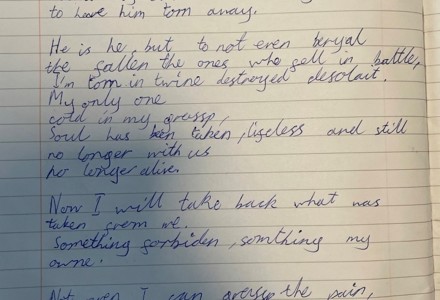 to have him torn away.
He is he, but to not even beryal
the fallen the ones who fell in battle,
I'm torn in twine destroyed desolait.
My only one
cold in my grassp,
Soul has been taken, lifeless and still
no longer with us
no longer alive.
Now I will take back what was
taken from me.
Something forbiden, somthing my
owne.
Not even I can grassp the pain,